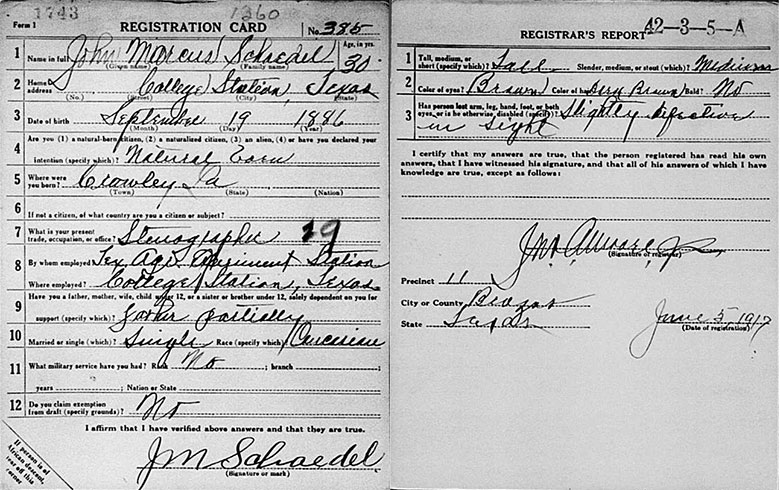 1743 1360
Form 1 REGISTRATION CARD No. 385
1 Name in full John Marcus Schaedel Age, in yrs. 30
(Given name) (Family name)
2 Home address College Station, Texas
(No.) (Street) (City) (State)
3 Date of birth September 19 1886
(Month) (Day) (Year)
4 Are you (1) a natural-born citizen, (2) a naturalized citizen, (3) an alien, (4) or have you declared your
intention (specify which)? Natural Born
5 Where were you born? Crowley La
(Town) (State) (Nation)
6 If not a citizen, of what country are you a citizen or subject?
7 What is your present trade, occupation, or office? Stenographer 19
8 By whom employed Tex Ag. Station
Where employed? College Station, Texas
9 Have you a father, mother, wife, child under 12, or a sister or brother under 12, solely dependent on you for
support (specify which)? partially
10 Married or single (which)? Single Race (specify which)? Caucasian
11 What military service have you had? Rank No ; branch ;
years ; Nation or State
12 Do you claim exemption from draft (specify grounds)? No
I affirm that I have verified above answers and that they are true.
J M Schaedel
(Signature or mark)
If person is of
African descent,
tear off this
corner
REGISTRAR'S REPORT 42-3-5-A
1 Tall, medium, or short (specify which)? Tall Slender, medium, or stout (which)? Medium
2 Color of eyes? Brown Color of hair? Brown Bald? No
3 Has person lost arm, leg, hand, foot, or both
eyes, or is he otherwise, disabled (specify)? Slightly defective
in sight
I certify that my answers are true, that the person registered has read his own
answers, that I have witnessed his signature, and that all of his answers of which I have
knowledge are true, except as follows:
(Signature of registrar)
Precinct 11
City or County Brazos
State
June 5 1917
(Date of registration)